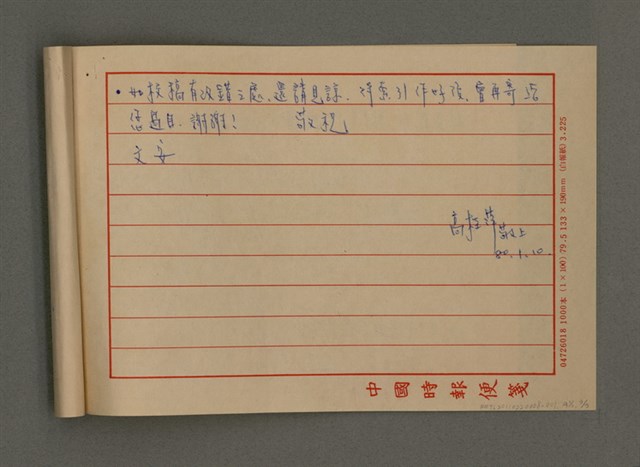 •如校稿有改錯之處,還請見諒.待索引作好後,會再寄給
您過目.謝謝! 敬祝
文安
高桂萍 敬上
80.1.10.
中國時報便箋
04726018 1000本 (1×100) 79.5 133×190mm (白報紙) 3.225